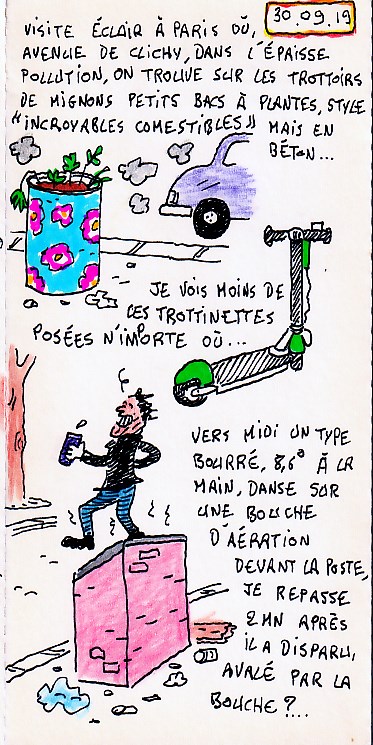 30.09.19
VISITE ÉCLAIR À PARIS OÙ,
AVENUE DE CLICHY, DANS L'ÉPAISSE
POLLUTION, ON TROUVE SUR LES TROTTOIRS
DE MIGNONS PETITS BACS À PLANTES, STYLE
"INCROYABLES COMESTIBLES" MAIS EN
BÉTON...
JE VOIS MOINS DE
CES TROTTINETTES
POSÉES N'IMPORTE OÙ...
VERS MIDI UN TYPE
BOURRÉ, 8,6° À LA
MAIN, DANSE SUR
UNE BOUCHE
D'AÉRATION
DEVANT LA POSTE,
JE REPASSE
2 MN APRÈS
IL A DISPARU,
AVALÉ PAR LA
BOUCHE ?...